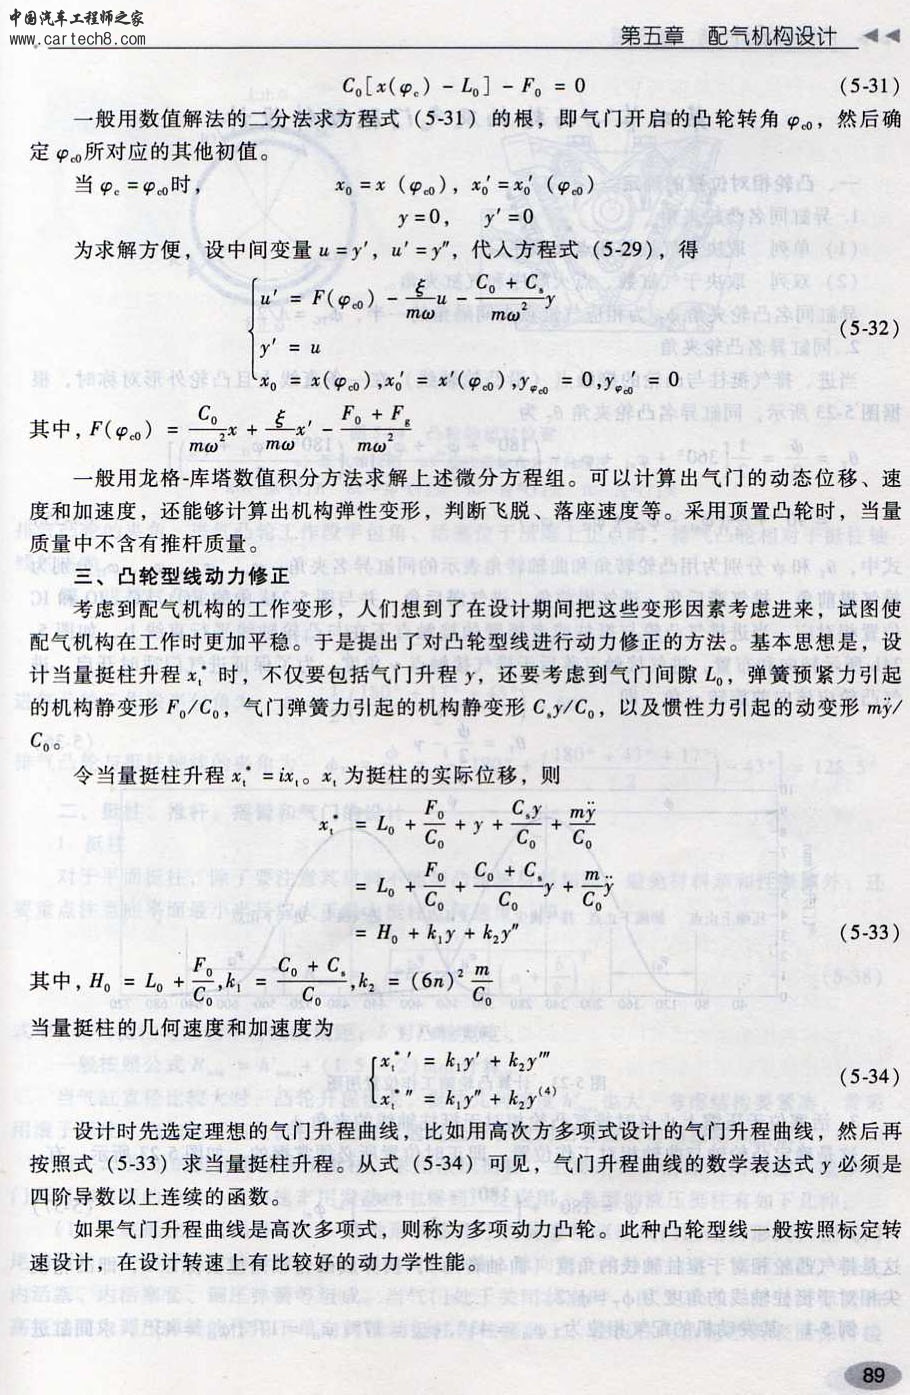 中国汽车工程师之家
www.cartech8.com
第五章 配气机构设计
C₀[x(φ_c) − L₀] − F₀ = 0 (5-31)
一般用数值解法的二分法求方程式 (5-31) 的根，即气门开启的凸轮转角 φ_c0，然后确
定 φ_c0所对应的其他初值。
当 φ_c = φ_c0时， x₀ = x (φ_c0)，x₀′ = x₀′ (φ_c0)
y = 0， y′ = 0
为求解方便，设中间变量 u = y′，u′ = y″，代入方程式 (5-29)，得
u′ = F(φ_c0) − ξ/(mω) u − (C₀ + C_s)/(mω²) y
y′ = u (5-32)
x₀ = x(φ_c0),x₀′ = x′(φ_c0),y_φc0 = 0,y_φc0′ = 0
其中，F(φ_c0) = C₀/(mω²) x + ξ/(mω) x′ − (F₀ + F_g)/(mω²)
一般用龙格-库塔数值积分方法求解上述微分方程组。可以计算出气门的动态位移、速
度和加速度，还能够计算出机构弹性变形，判断飞脱、落座速度等。采用顶置凸轮时，当量
质量中不含有推杆质量。
三、凸轮型线动力修正
考虑到配气机构的工作变形，人们想到了在设计期间把这些变形因素考虑进来，试图使
配气机构在工作时更加平稳。于是提出了对凸轮型线进行动力修正的方法。基本思想是，设
计当量挺柱升程 x_t* 时，不仅要包括气门升程 y，还要考虑到气门间隙 L₀，弹簧预紧力引起
的机构静变形 F₀/C₀，气门弹簧力引起的机构静变形 C_s y/C₀，以及惯性力引起的动变形 mÿ/
C₀。
令当量挺柱升程 x_t* = ix_t。x_t 为挺柱的实际位移，则
x_t* = L₀ + F₀/C₀ + y + C_s y/C₀ + mÿ/C₀
= L₀ + F₀/C₀ + (C₀ + C_s)/C₀ y + m/C₀ ÿ
= H₀ + k₁y + k₂y″ (5-33)
其中，H₀ = L₀ + F₀/C₀,k₁ = (C₀ + C_s)/C₀,k₂ = (6n)² m/C₀
当量挺柱的几何速度和加速度为
x_t*′ = k₁y′ + k₂y‴
x_t*″ = k₁y″ + k₂y⁽⁴⁾ (5-34)
设计时先选定理想的气门升程曲线，比如用高次方多项式设计的气门升程曲线，然后再
按照式 (5-33) 求当量挺柱升程。从式 (5-34) 可见，气门升程曲线的数学表达式 y 必须是
四阶导数以上连续的函数。
如果气门升程曲线是高次多项式，则称为多项动力凸轮。此种凸轮型线一般按照标定转
速设计，在设计转速上有比较好的动力学性能。
89